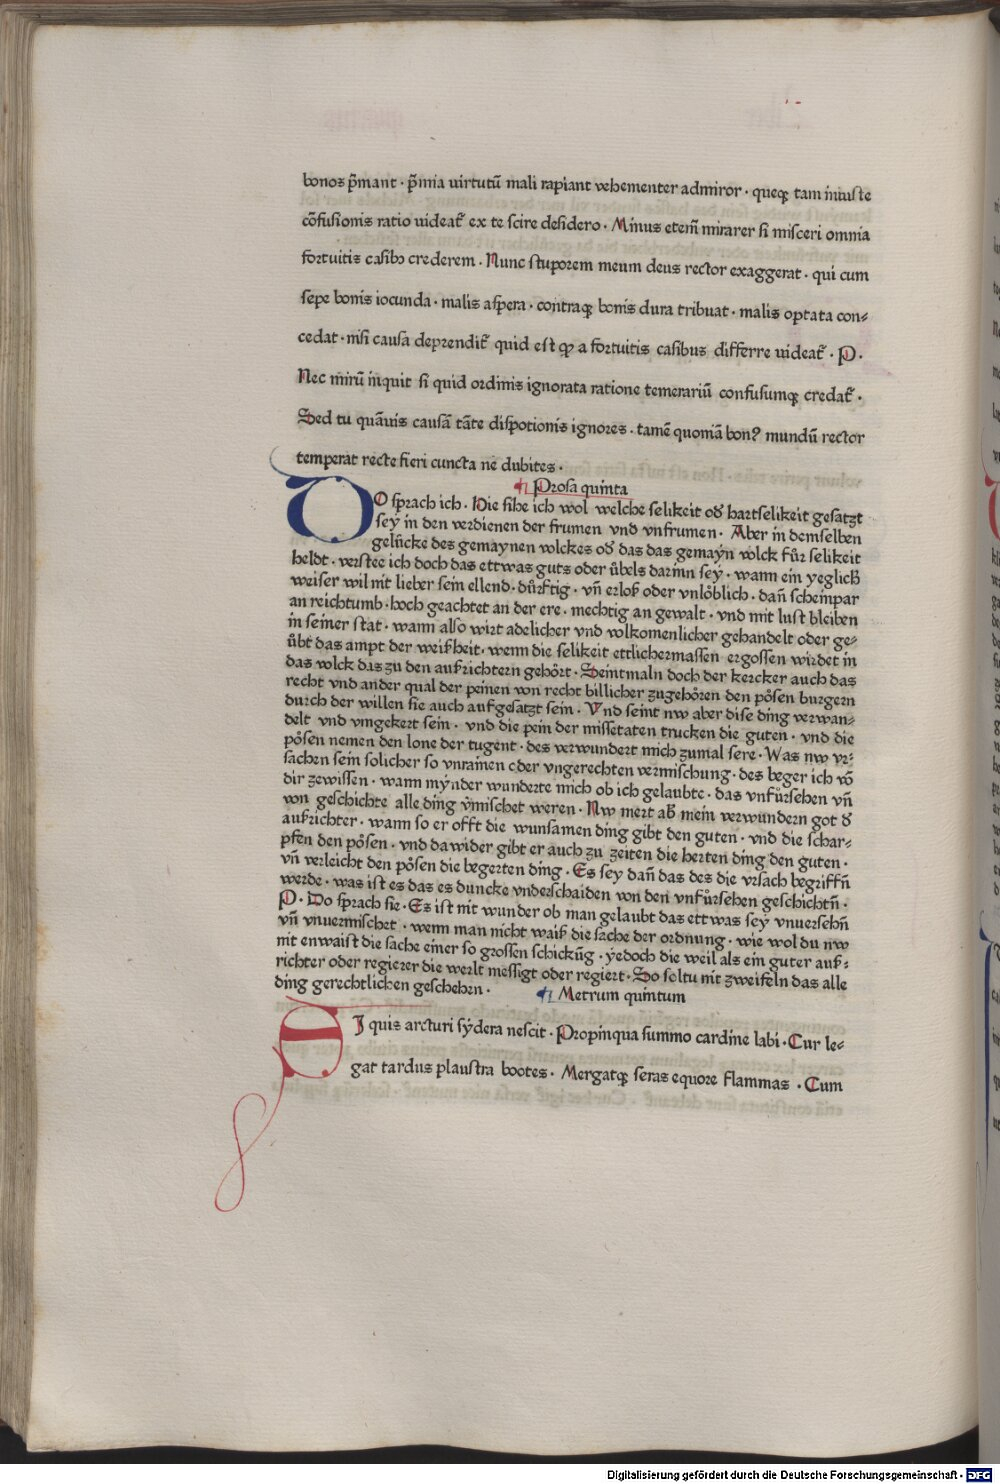 bonos p̄mant · p̄mia uirtutū mali rapiant vehementer admiror · queqꝫ tam iniuste
cōfusionis ratio uideat᷑ ex te scire desidero · Minus etem̄ mirarer si misceri omnia
fortuitis casibꝫ crederem · Nunc stuporem meum deus rector exaggerat · qui cum
sepe bonis iocunda · malis aspera · contraqꝫ bonis dura tribuat · malis optata con⸗
cedat · nisi causa deprendit᷑ quid est qꝫ a fortuitis casibus differre uideat᷑ · P ·
Nec mirū inquit si quid ordinis ignorata ratione temerariū confusumqꝫ credat᷑ ·
Sed tu quāuis causā tāte dispotionis ignores · tamē quoniā bonꝰ mundū rector
temperat recte fieri cuncta ne dubites ·
¶ Prosa quinta
DO sprach ich · Nie sihe ich wol welche selikeit od̕ hartselikeit gesatzt
seÿ in den verdienen der frumen vnd vnfrumen · Aber in demselben
gelücke des gemaynen volckes od̕ das das gemaÿn volck fůr selikeit
heldt · verstee ich doch das ettwas guts oder ůbels darinn seÿ · wann ein yeglich̕
weiser wil nit lieber sein ellend · důrftig · vn̄ erloß oder vnlöblich · dan̄ scheinpar
an reichtumb · hoch geachtet an der ere · mechtig an gewalt · vnd mit lust bleiben
in seiner stat · wann also wirt adelicher vnd volkomenlicher gehandelt oder ge⸗
ůbt das ampt der weißheit · wenn die selikeit ettlichermassen ergossen wirdet in
das volck das zu den außrichtern gehört · Seintmaln doch der kercker auch das
recht vnd ander qual der peinen von recht billicher zugehören den pösen burgern
durch der willen sie auch aufgesatzt sein · Vnd seint nw aber dise ding verwan⸗
delt vnd vmgekert sein · vnd die pein der missetaten trucken die guten · vnd die
pösen nemen den lone der tugent · des verwundert mich zumal sere · Was nw vr⸗
sachen sein solicher so vnraÿnen oder vngerechten vermischung · des beger ich vō
dir zewissen · wann mÿnder wunderte mich ob ich gelaubte · das vnfůrsehen vn̄
von geschichte alle ding v̄mischet weren · Nw mert ab̕ mein verwundern got d̕
außrichter · wann so er offt die wunsamen ding gibt den guten · vnd die schar⸗
pfen den pösen · vnd dawider gibt er auch zu zeiten die herten ding den guten ·
vn̄ verleicht den pösen die begerten ding · Es sey dan̄ das des die vrsach begriffn̄
werde · was ist es das es duncke vnderschaiden von den vnfůrsehen geschichtn̄ ·
P · Do sprach sie · Es ist nit wunder ob man gelaubt das ettwas seÿ vnuersehn̄
vn̄ vnuermischet · wenn man nicht waiß die sache der ordnung · wie wol du nw
nit enwaist die sache einer so grossen schickūg · ÿedoch die weil als ein guter auß⸗
richter oder regierer die werlt messigt oder regiert · So soltu nit zweifeln das alle
ding gerechtlichen geschehen ·
¶ Metrum quintum
SJ quis arcturi sÿdera nescit · Propinqua summo cardine labi · Cur le⸗
gat tardus plaustra bootes · Mergatqꝫ seras equore flammas · Cum
Digitalisierung gefördert durch die Deutsche Forschungsgemeinschaft - DFG